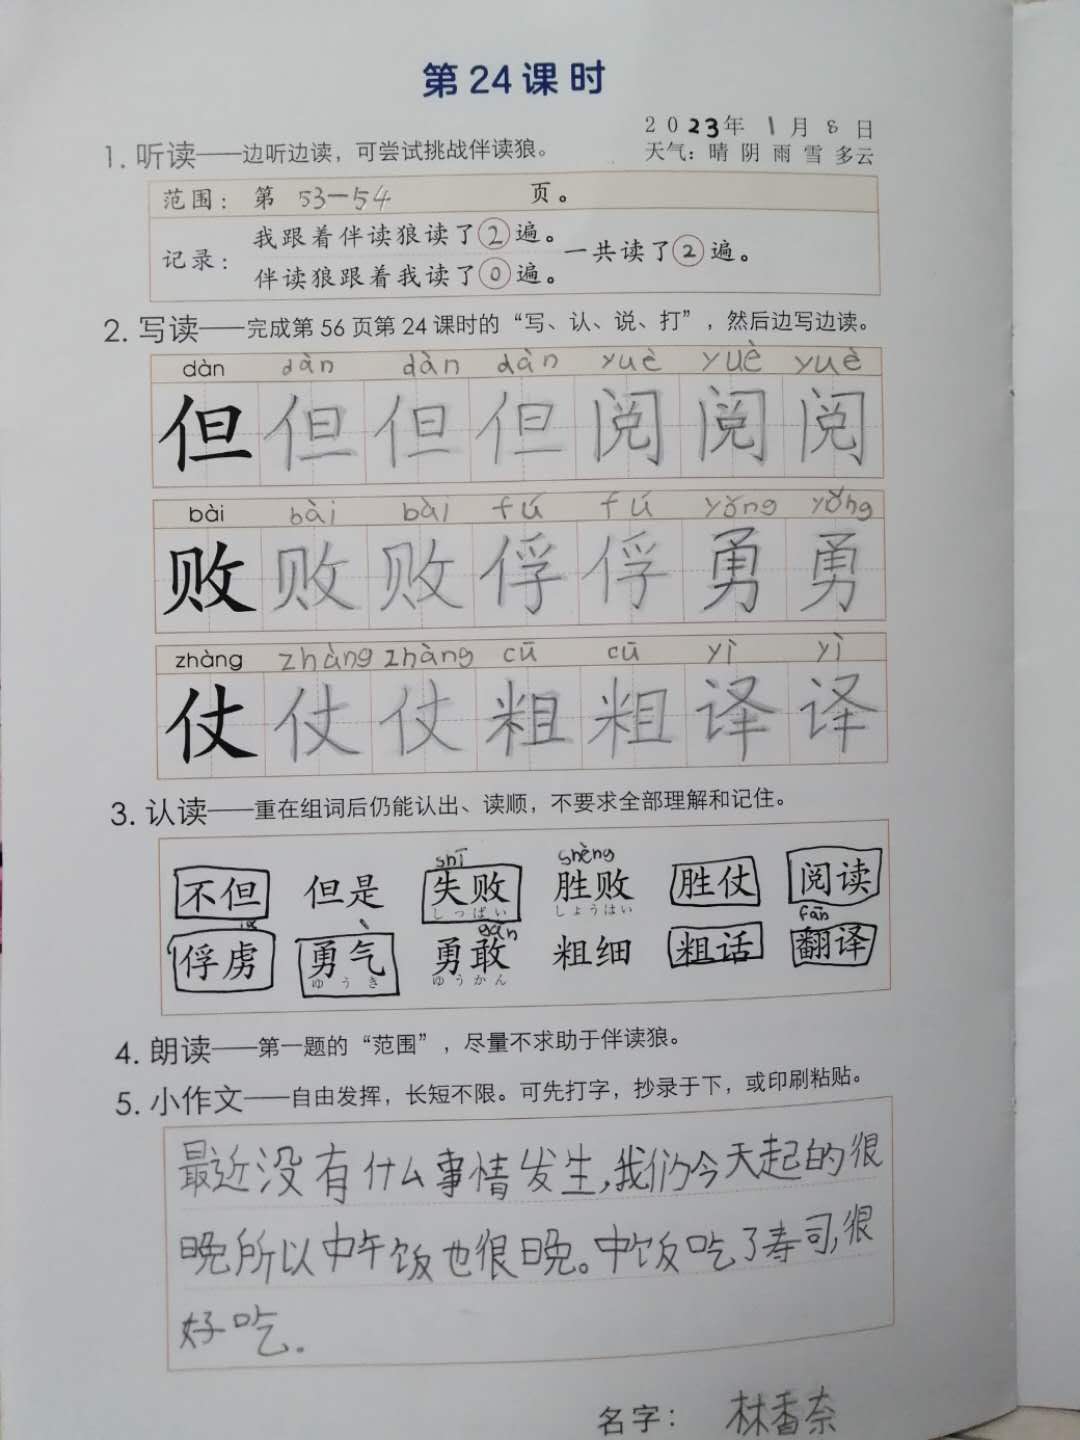 第24课时
2023年 1月 8日
天气：晴 阴 雨 雪 多云
1. 听读——边听边读，可尝试挑战伴读狼。
范围：第 53—54 页。
记录：
我跟着伴读狼读了②遍。
伴读狼跟着我读了⓪遍。
一共读了②遍。
2. 写读——完成第 56 页第 24 课时的“写、认、说、打”，然后边写边读。
dàn dàn dàn dàn yuè yuè yuè
但 但 但 但 阅 阅 阅
bài bài bài fú fú yǒng yǒng
败 败 败 俘 俘 勇 勇
zhàng zhàng zhàng cū cū yì yì
仗 仗 仗 粗 粗 译 译
3. 认读——重在组词后仍能认出、读顺，不要求全部理解和记住。
shī shèng
不但 但是 失败 胜败 胜仗 阅读
しっぱい しょうはい
gǎn fān
俘虏 勇气 勇敢 粗细 粗话 翻译
ゆうき ゆうかん
4. 朗读——第一题的“范围”，尽量不求助于伴读狼。
5. 小作文——自由发挥，长短不限。可先打字，抄录于下，或印刷粘贴。
最近没有什么事情发生，我们今天起的很
晚所以中午饭也很晚。中饭吃了寿司，很
好吃。
名字： 林香奈